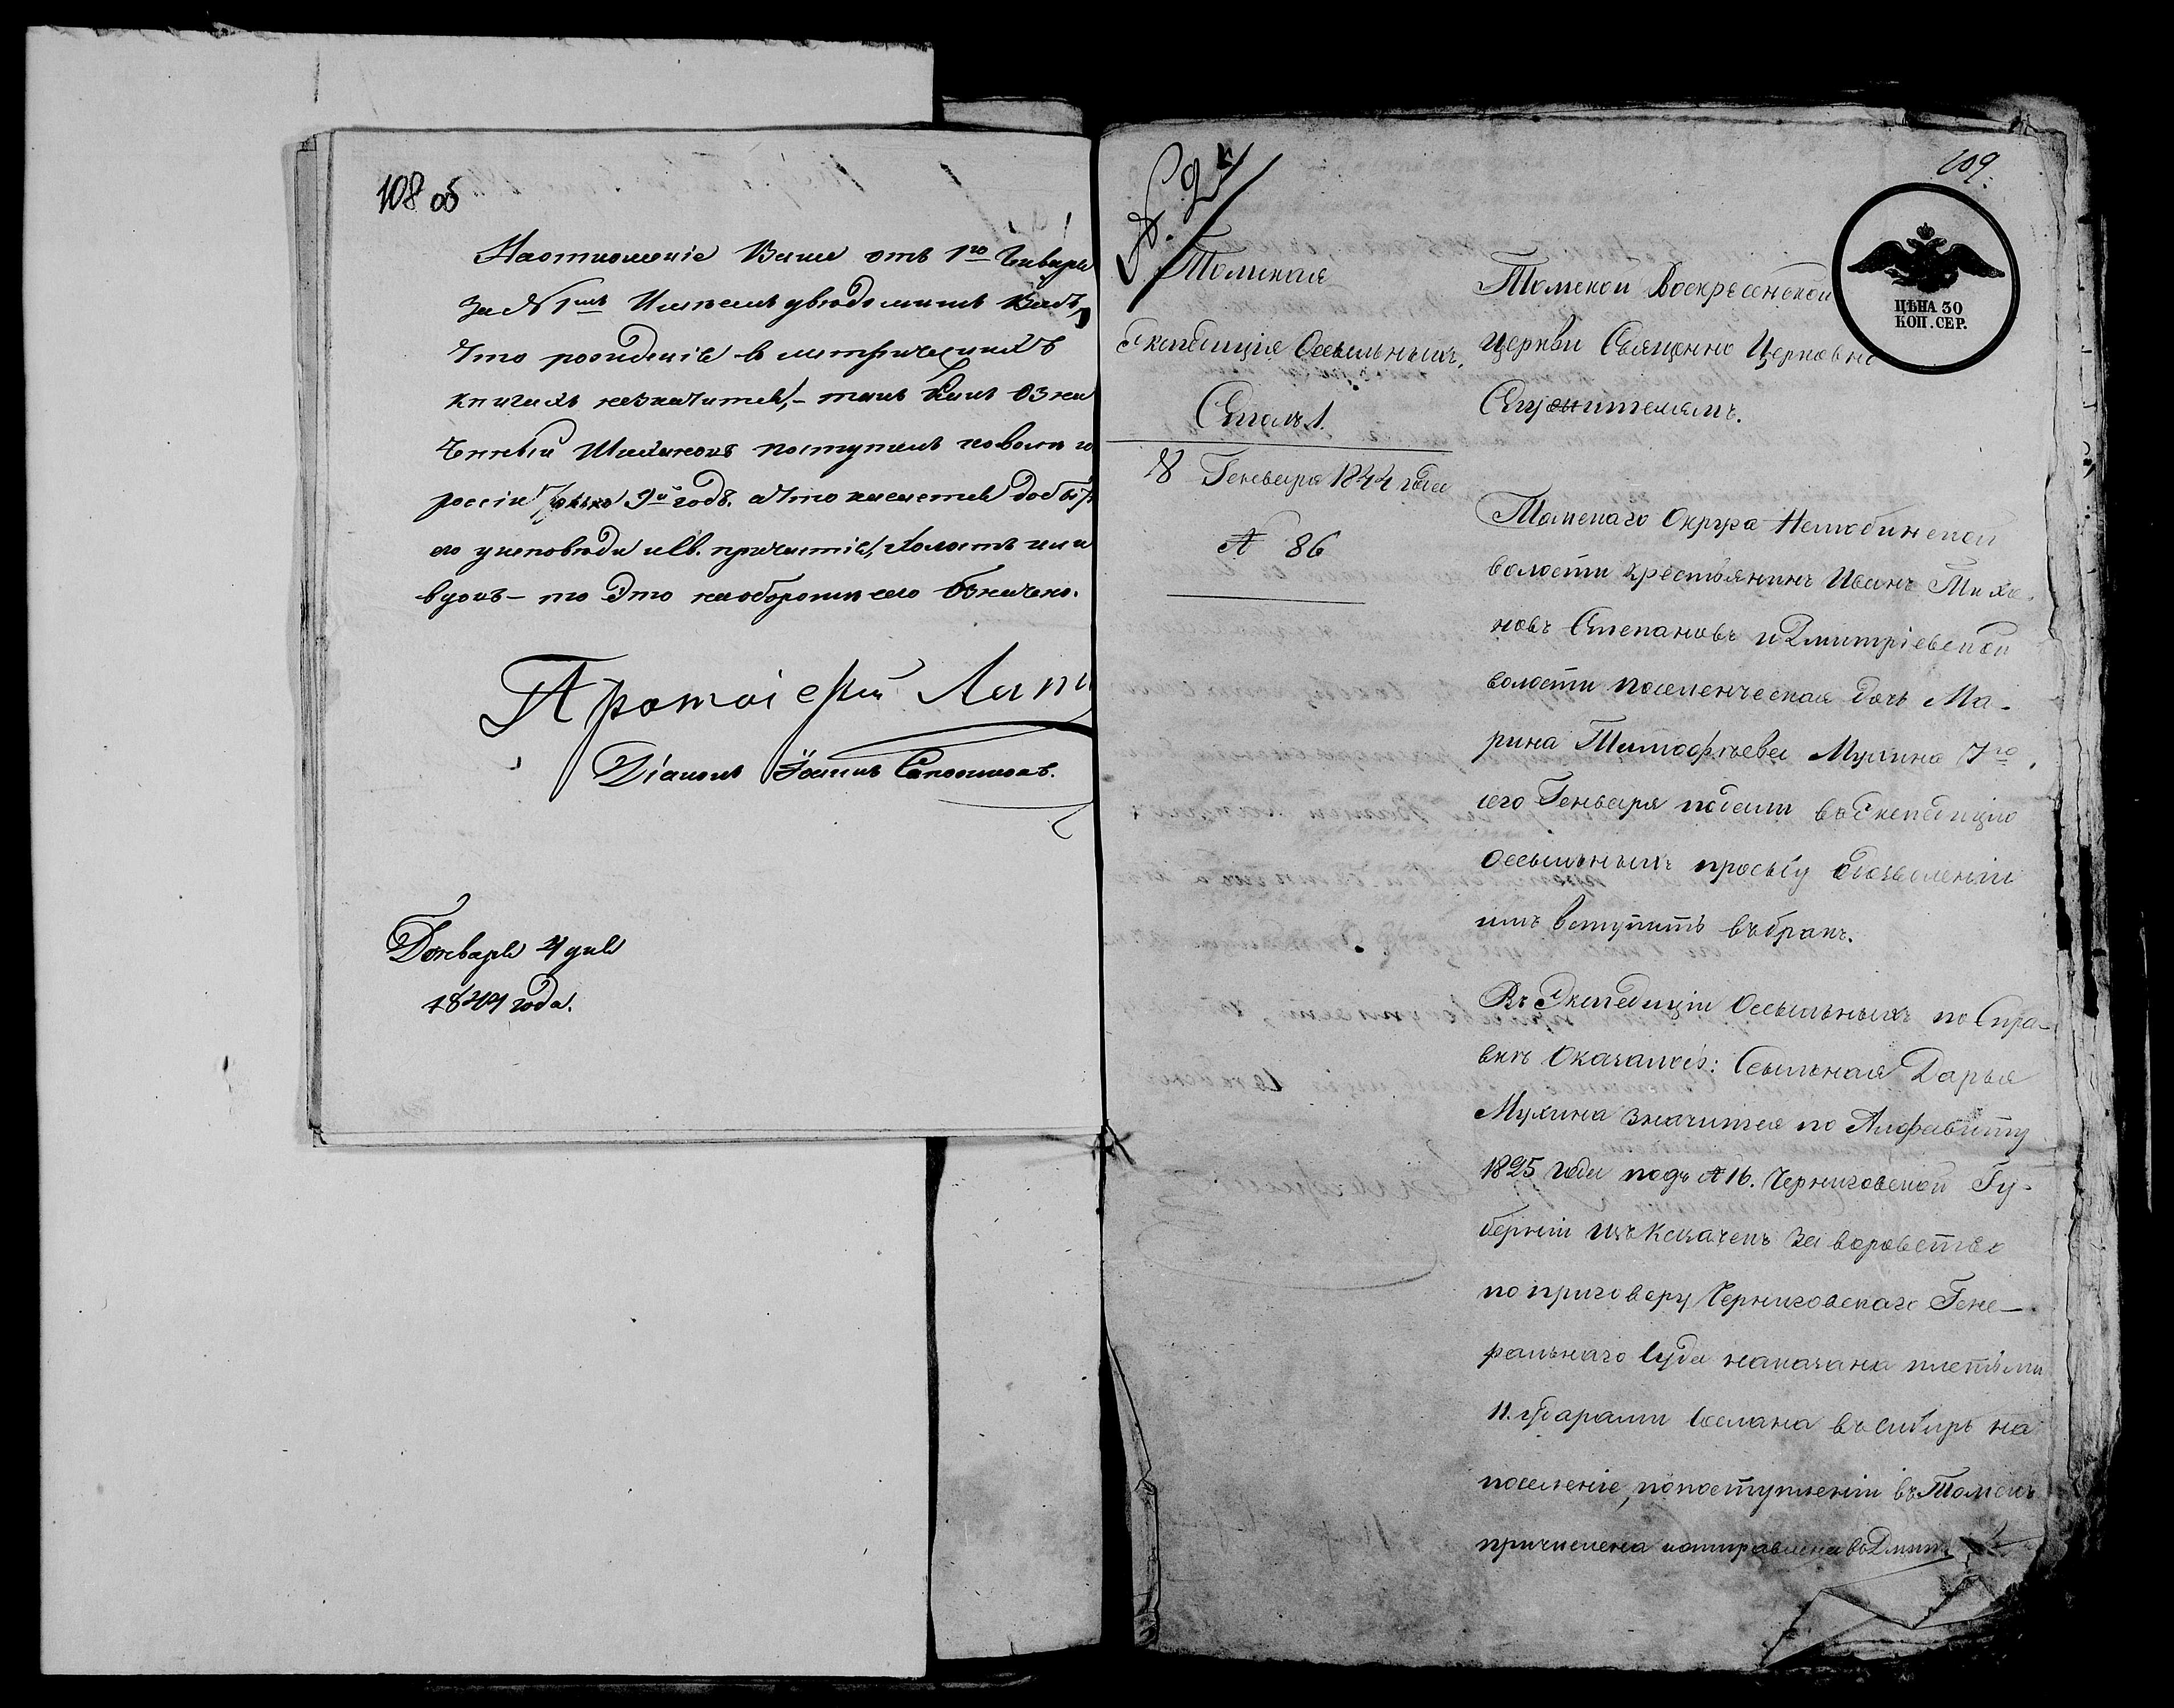 108 об
На отношеніе Ваше отъ 1го Генваря
За № 1мъ Имѣемъ увѣдомить Васъ,
что рожденіе в метрическихъ
книгахъ незначится, – такъ какъ озна
ченный поступилъ
россіи только 9й годъ. а что касается до быт
его у исповѣди и св. причастія, холостъ или
вдовъ – то это на оборотѣ сего Означено.
Протоіерей
Діаконъ Іоаннъ
Генваря 4 дня
1844 года.
109.
Томская
Экспедиція Ссыльныхъ.
Столъ 1.
18 Генваря 1844 года
№ 86
ЦѢНА 30
КОП. СЕР.
Томской Воскресенской
церкви Священно Церковно
Служителямъ.
Томскаго Округа Нелюбинской
волости крестьянинъ Иванъ Тихо-
новъ Степановъ и Дмитріевской
волости поселенческая дочь Ма-
рина Тимофѣева Мухина 7го
сего Генваря подали въ Експедицію
Ссыльныхъ просьбу о дозволеніи
имъ вступить въ бракъ.
Въ Экспедиціи Ссыльныхъ по Спра-
вкѣ Оказалось: Ссыльная Дарья
Мухина значится по Алфавиту
1825 года подъ № 16. Черниговской Гу-
берніи изъ Казачекъ За воровство
по приговору Черниговскаго Гене-
ральнаго Суда наказана плетьми
11. ударами Сослана въ Сибирь на
поселеніе, по поступленіи въ Томскъ
причислена и отправлена въ Дмит